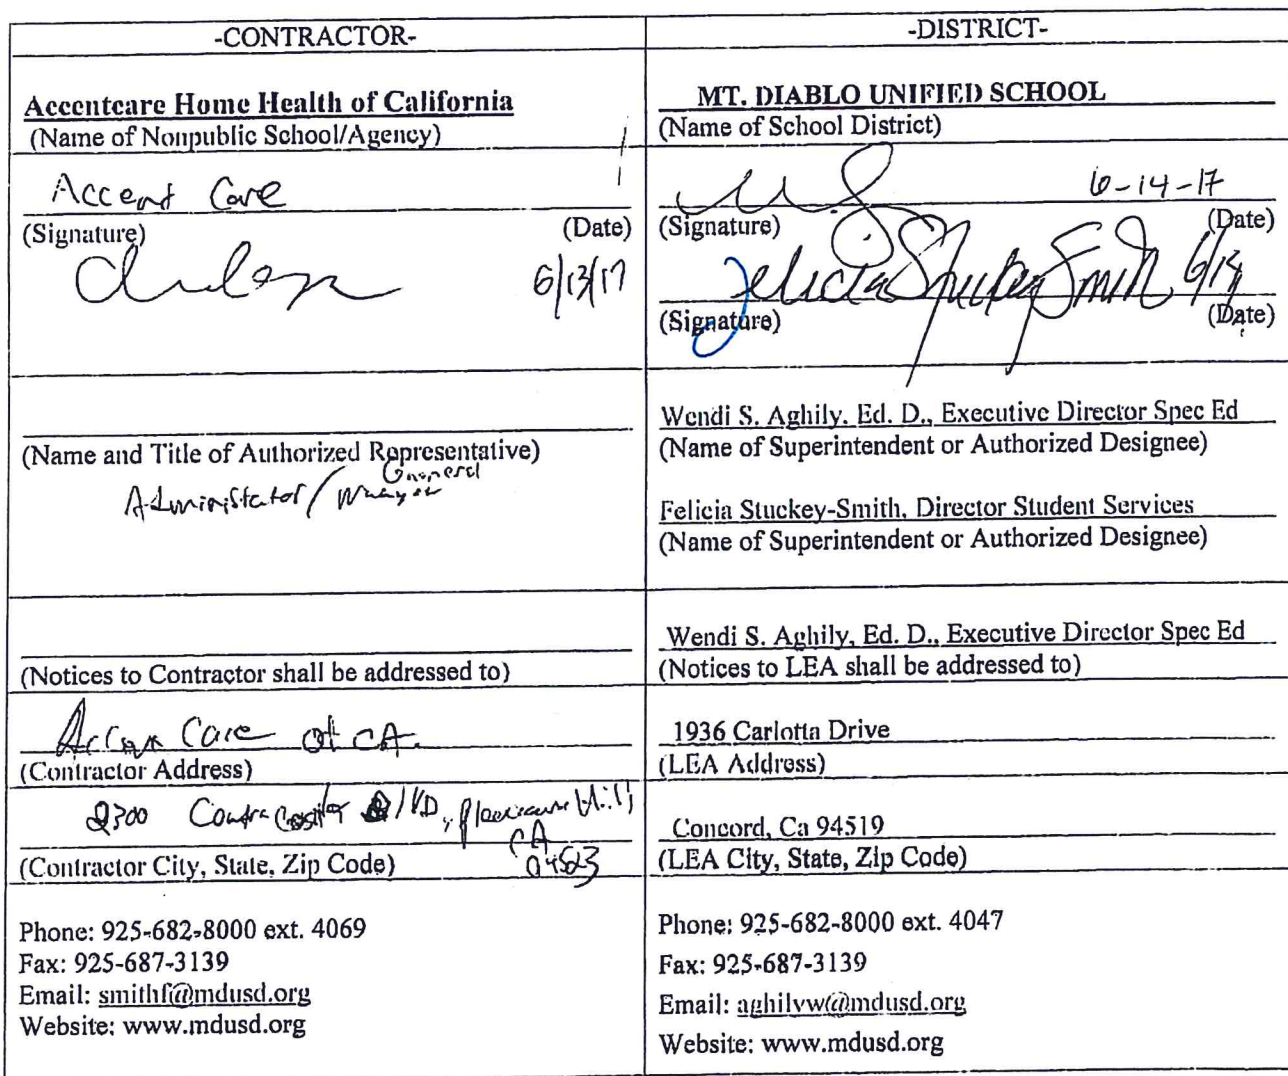 -CONTRACTOR-
Accentcare Home Health of California
(Name of Nonpublic School/Agency)
Accent Care
(Signature) (Date)
6/13/17
(Name and Title of Authorized Representative)
Administator/ General
Manager
(Notices to Contractor shall be addressed to)
Accent Care of CA.
(Contractor Address)
2300 Contra Costa Blvd, Pleasant Hill
CA
(Contractor City, State, Zip Code) 94523
Phone: 925-682-8000 ext. 4069
Fax: 925-687-3139
Email: smithf@mdusd.org
Website: www.mdusd.org
-DISTRICT-
MT. DIABLO UNIFIED SCHOOL
(Name of School District)
6-14-17
(Signature) (Date)
Felicia Stuckey Smith 6/14
(Signature) (Date)
Wendi S. Aghily, Ed. D., Executive Director Spec Ed
(Name of Superintendent or Authorized Designee)
Felicia Stuckey-Smith, Director Student Services
(Name of Superintendent or Authorized Designee)
Wendi S. Aghily, Ed. D., Executive Director Spec Ed
(Notices to LEA shall be addressed to)
1936 Carlotta Drive
(LEA Address)
Concord, Ca 94519
(LEA City, State, Zip Code)
Phone: 925-682-8000 ext. 4047
Fax: 925-687-3139
Email: aghilyw@mdusd.org
Website: www.mdusd.org